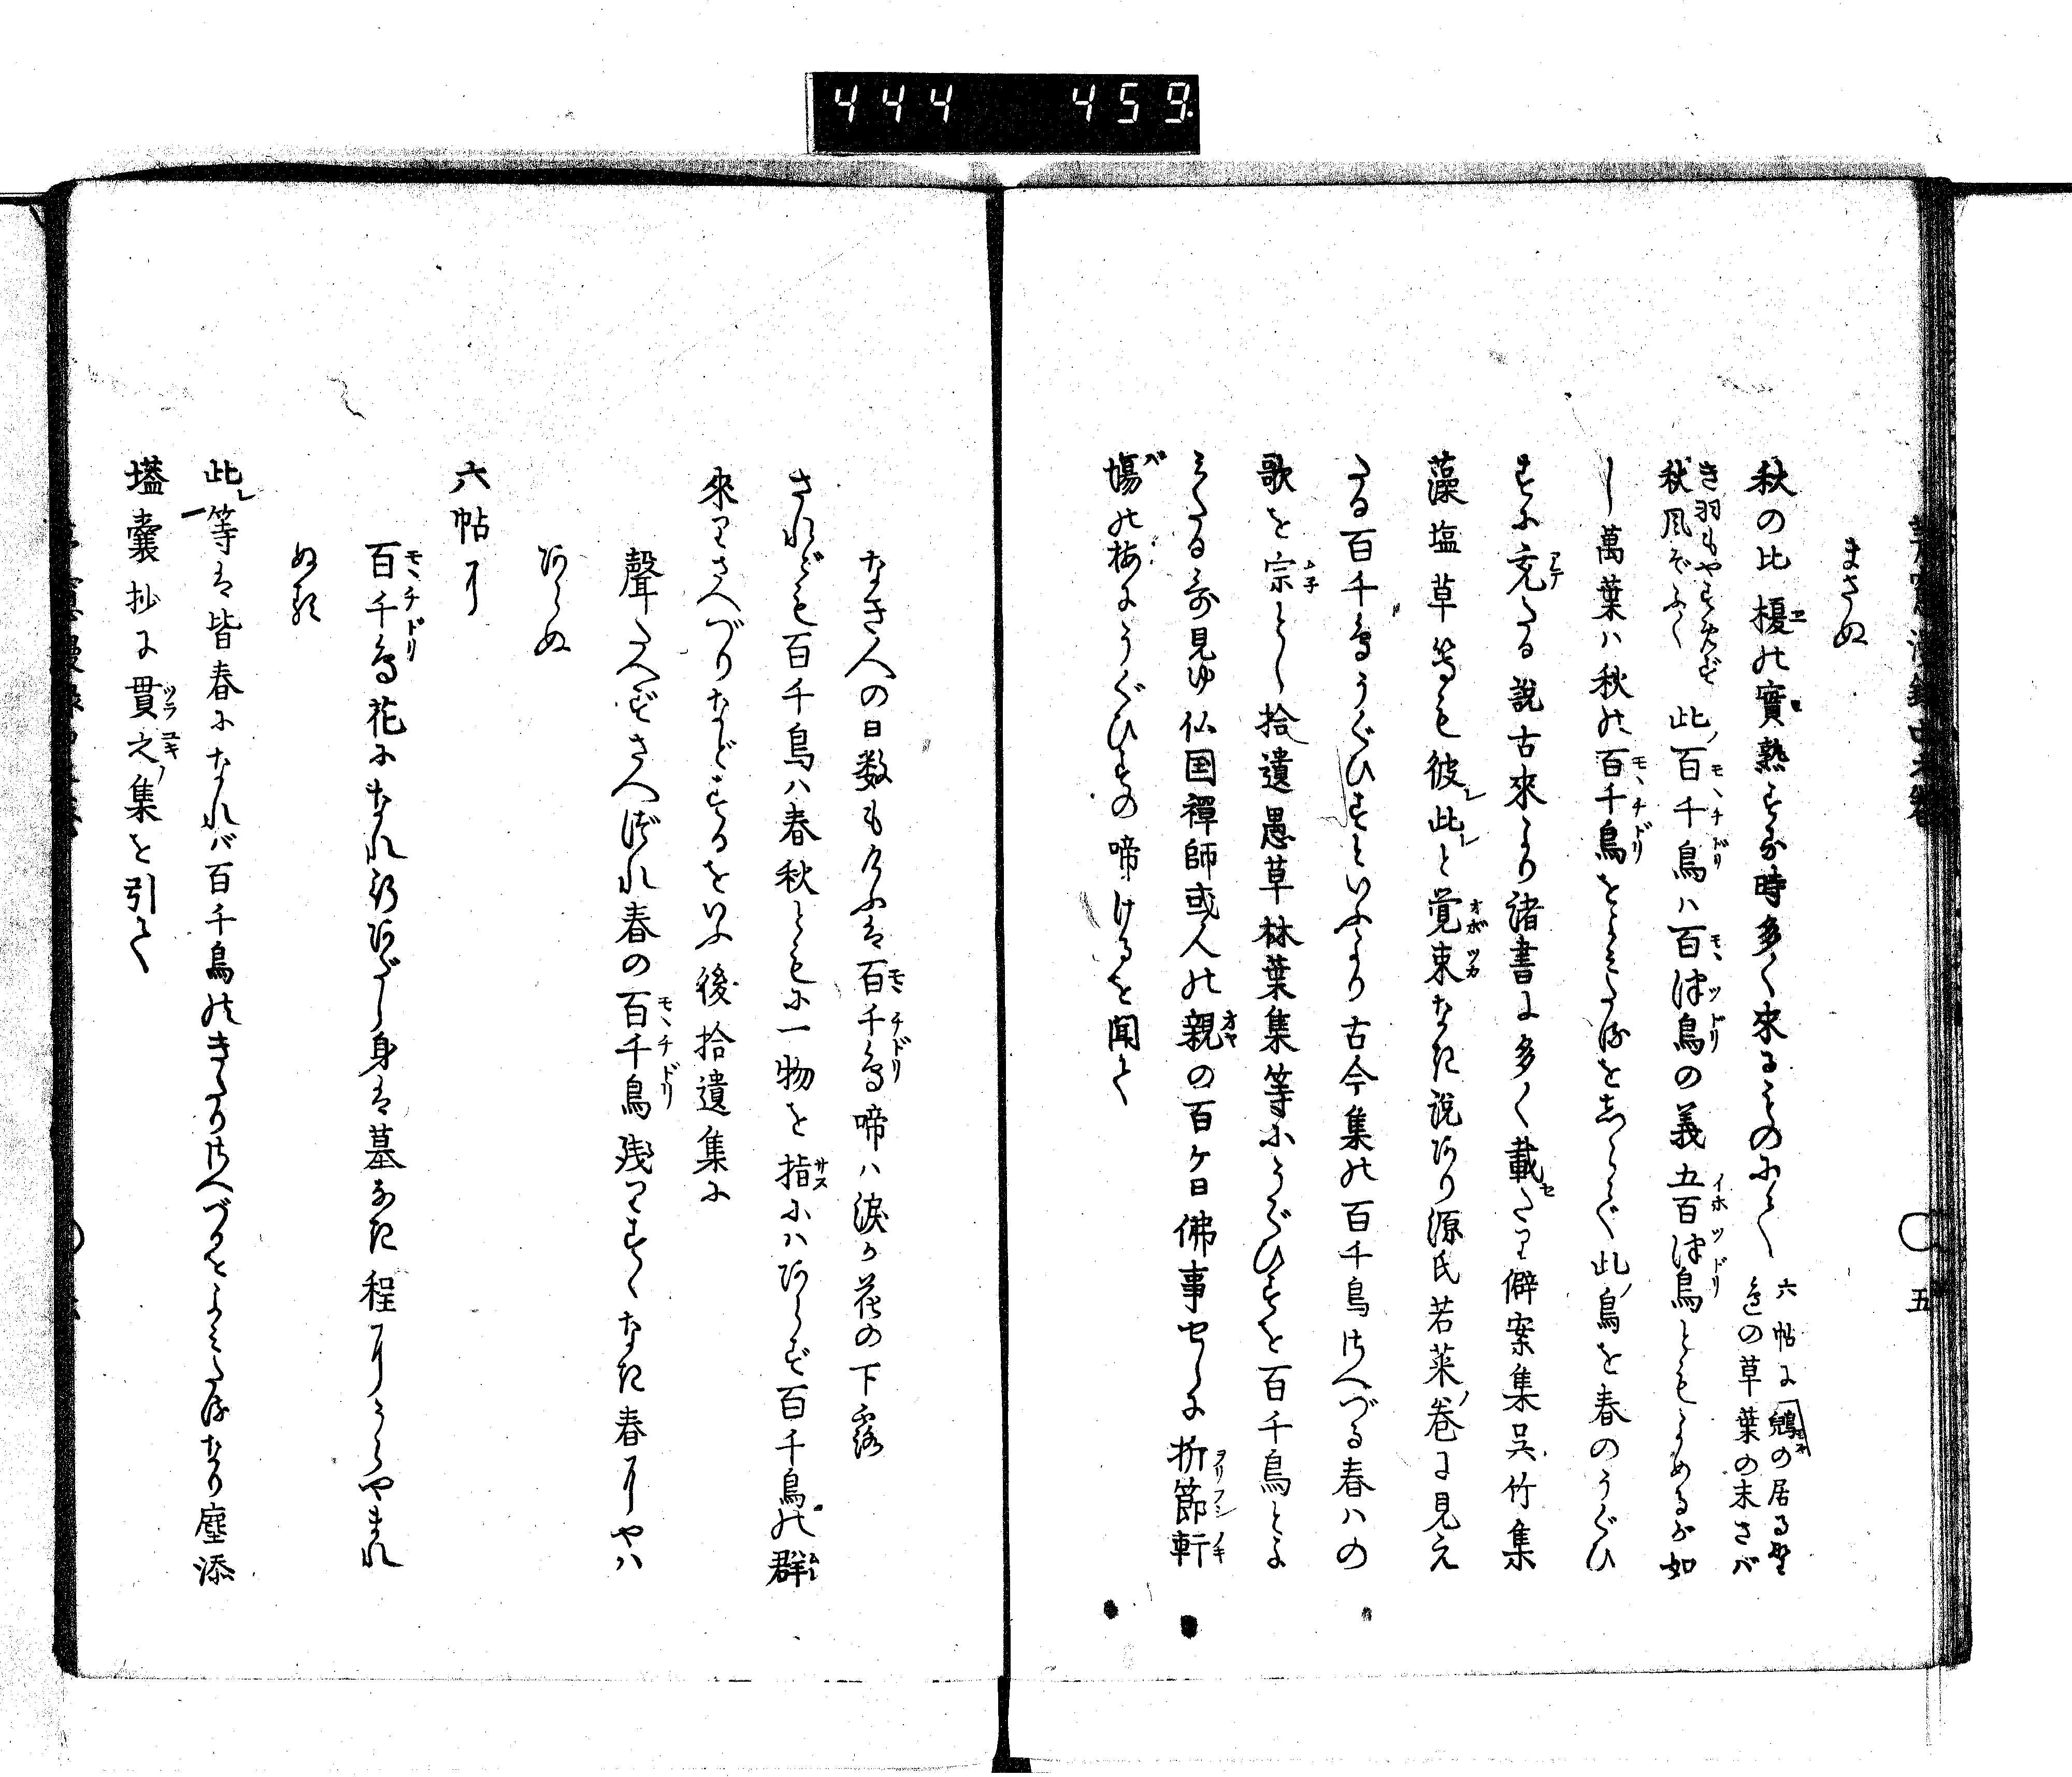 444 459
まさぬ
秋の比榎の實熟する時多く來るものにて 六帖に鵼の居る野
色の草葉の末さば
き羽もやすめず
秋風ぞふく 此ノ百千鳥ハ百津鳥の義五百津鳥ともよめるが如
し萬葉ハ秋の百千鳥をよみたるをしらで此ノ鳥を春のうぐひ
すに充たる説古來より諸書に多く載たり僻案集呉竹集
藻塩草等も彼レ此レと覚束なき説あり源氏若菜ノ巻に見え
たる百千鳥うぐひすといふより古今集の百千鳥さへづる春ハの
歌を宗とし拾遺愚草林葉集等にうぐひすを百千鳥とよ
みたる哥見ゆ仏国禅師或人の親の百ケ日佛事せしに折節軒
場の梅にうぐひすの啼けるを聞て
なき人の日数もけふは百千鳥啼ハ涙か花の下露
されども百千鳥ハ春秋ともに一物を指にハあらず百千鳥の群
來りさへづりなどするをいふ後拾遺集に
聲たえずさへづれ春の百千鳥残りすくなき春にやハ
あらぬ
六帖に
百千鳥花になれ行あだし身は墓なき程にうらやまれ
ぬる
此レ等は皆春になれバ百千鳥のきたりさへづるをよみたるなり塵添
壒嚢抄に貫之ノ集を引て
五